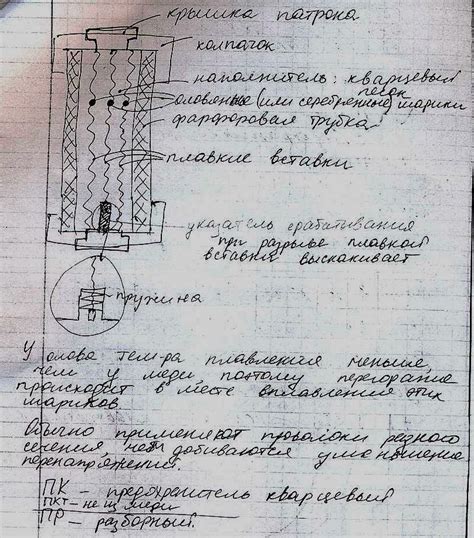 крышка патрона
колпачок
наполнитель: кварцевый
песок
оловянные (или серебренные) шарики
фарфоровая трубка
плавкие вставки
указатель срабатывания
при разрыве плавкой
вставки выскакивает
пружина
У олова темп-ра плавления меньше,
чем у меди поэтому перегорание
происходит в месте вплавления этих
шариков
Обычно применяют проволоки разного
сечения, добиваются уменьшение
перенапряжений.
ПК – предохранитель кварцевый
ПКТ – не
ПР – разборный.